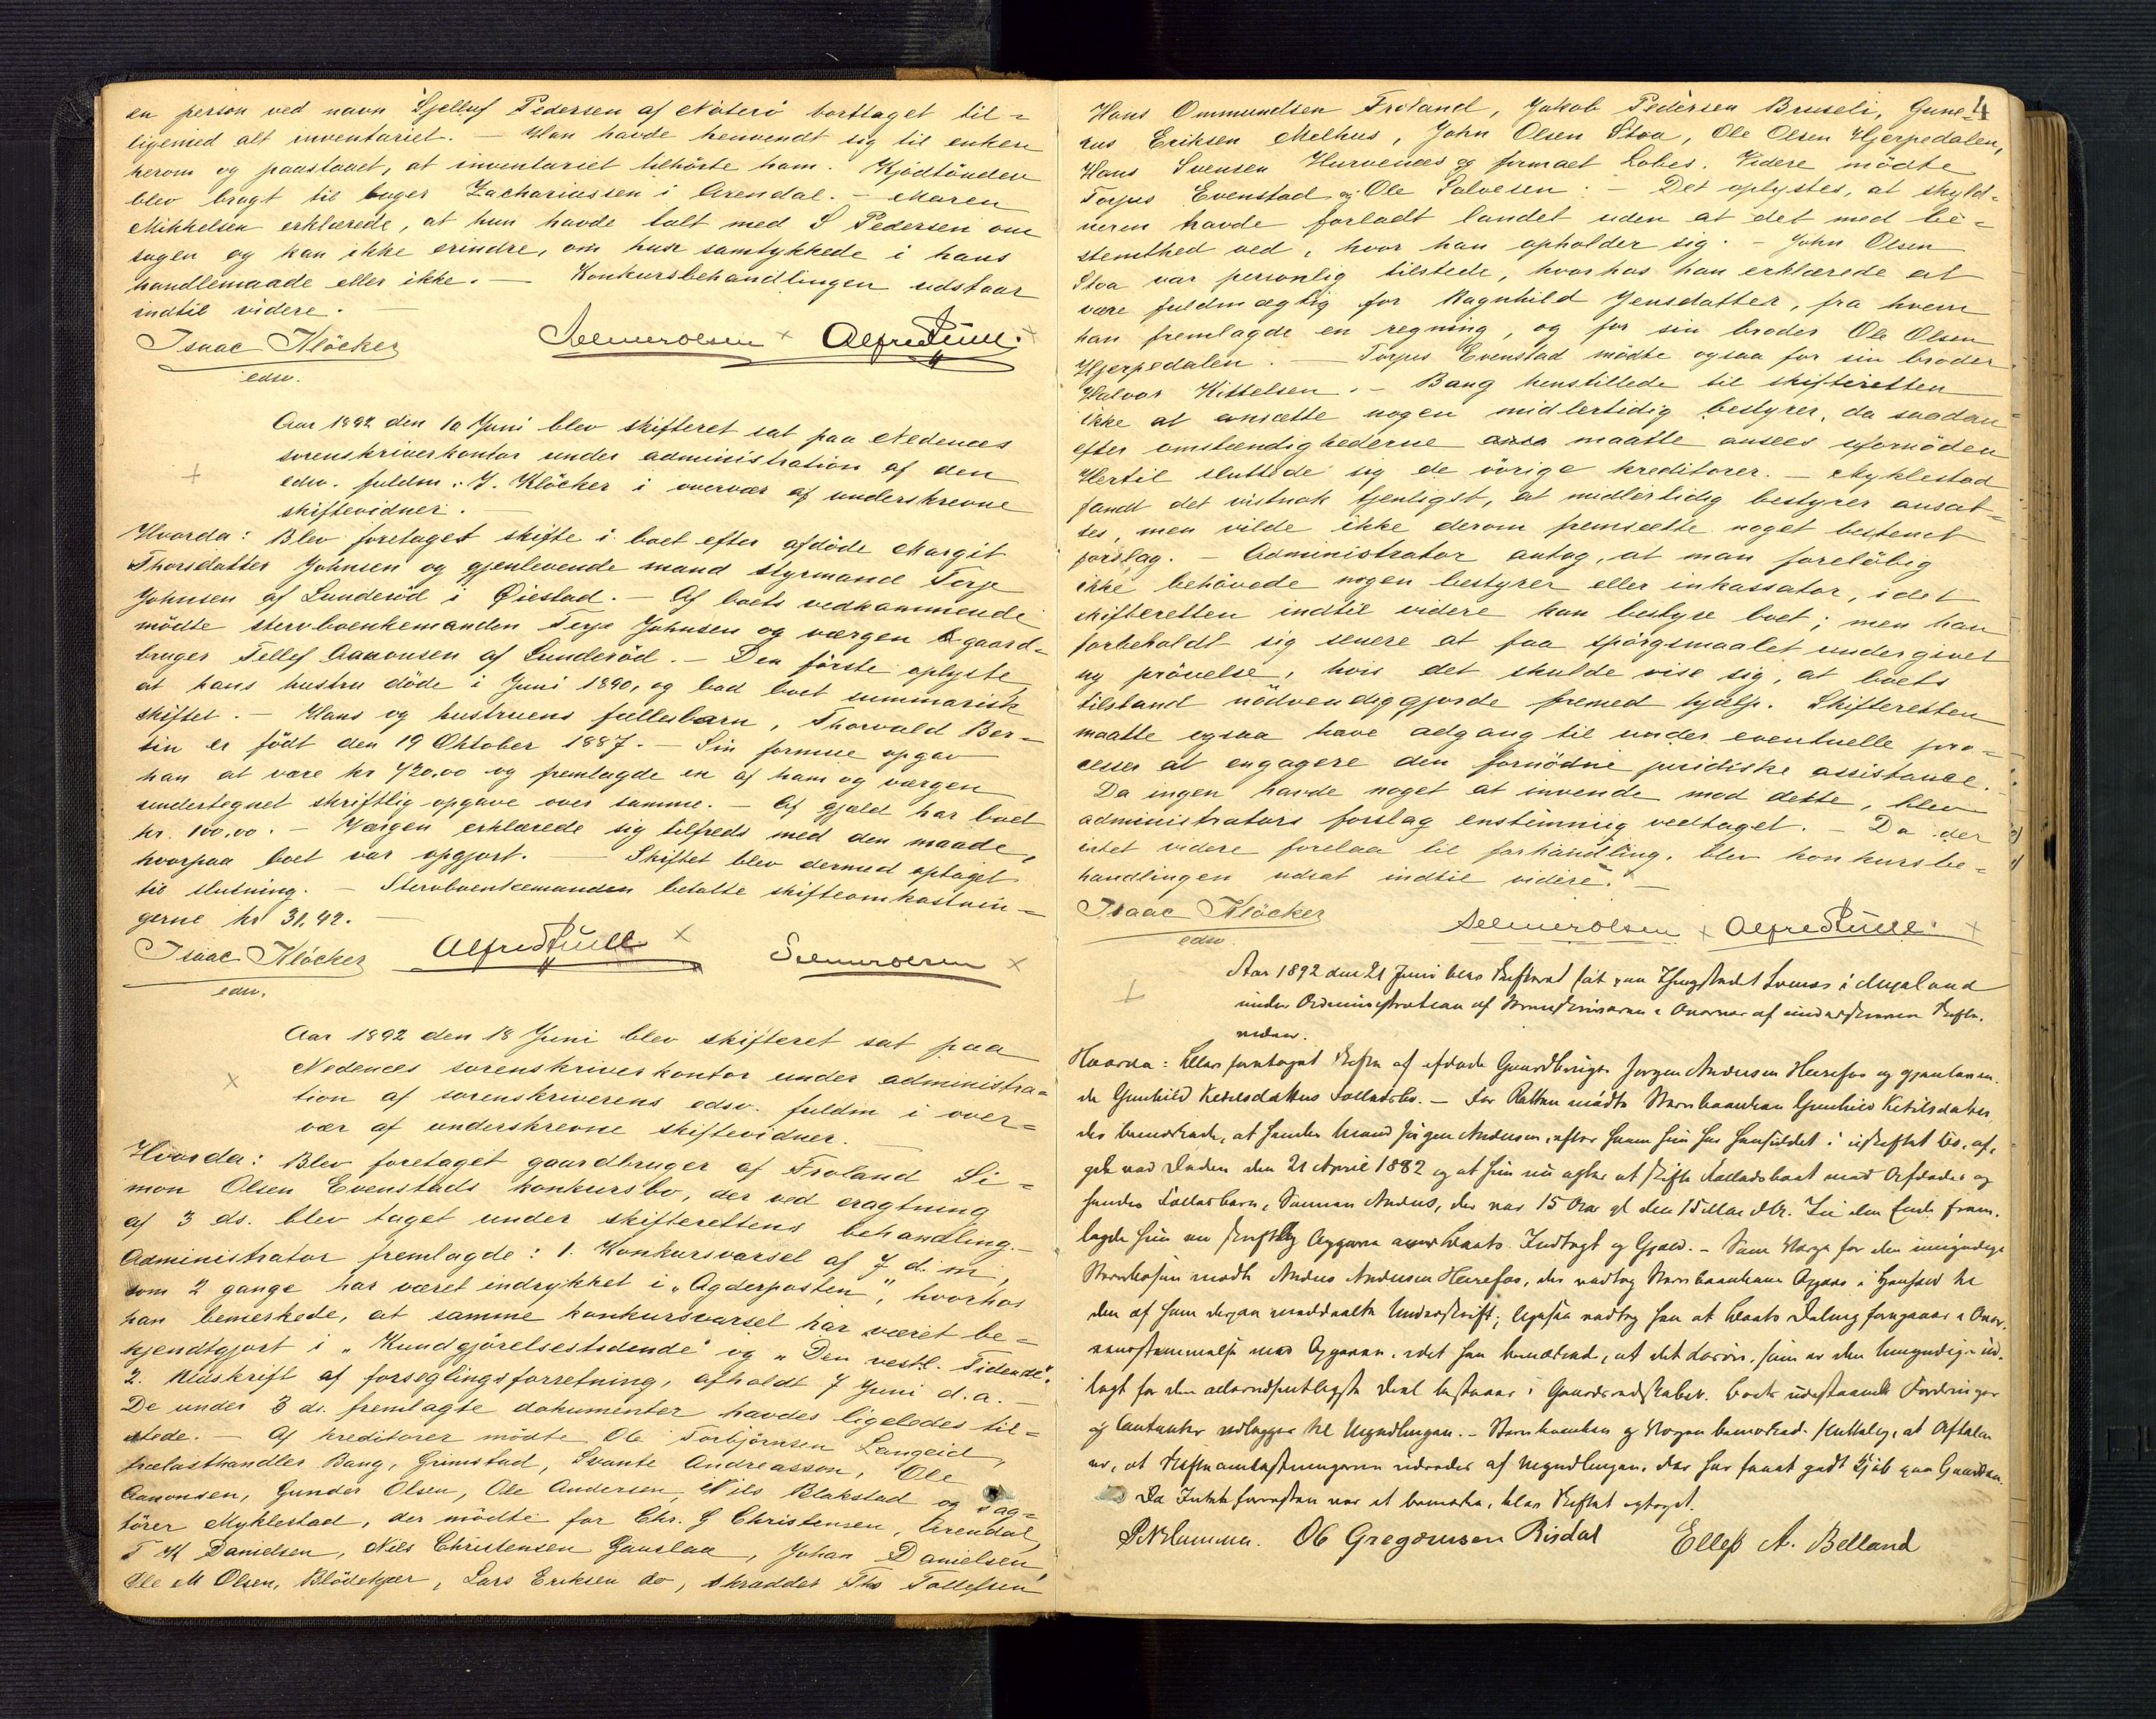 en person ved navn Sjelluf Pedersen af Nøterö borttaget til=
ligemed alt inventariet. – Han havde henvendt sig til enken
herom og paastaaet, at inventariet tilhörte ham. Kjödtönden
blev bragt til bager Zachariassen i Arendal. – Maren
Mikkelsen erklærede, at hun havde talt med S Pedersen om
sagen og kan ikke erindre, om hun samtykkede i hans
handlemaade eller ikke. – Konkursbehandlingen udstaar
indtil videre. –
Isaac Klöcker
edsv.
Selmer Olsen × Alfred Juell. ×
Aar 1892 den 10 Juni blev skifteret sat paa Nedenæs
sorenskriverkontor under administration af den
edsv. fuldm. I. Klöcker i overvær af underskrevne
skiftevidner. –
Hvorda: Blev foretaget skifte i boet efter afdöde Margit
Thorsdatter Johnsen og gjenlevende mand styrmand Terje
Johnsen af Lunderöd i Øiestad. – Af boets vedkommende
mödte stervboenkemanden Terje Johnsen og værgen gaard=
bruger Tellef Aanonsen af Lunderöd. – Den förste oplyste
at hans hustru döde i Juni 1890, og bad boet summarisk
skiftet. – Hans og hustruens fællesbarn, Thorvald Ber=
tin er födt den 19 Oktober 1887. – Sin formue opgav
han at være kr 420,00 og fremlagde en af ham og værgen
undertegnet skriftlig opgave over samme. – Af gjæld har boet
kr. 100,00. – Værgen erklærede sig tilfreds med den maade,
hvorpaa boet var opgjort. – Skiftet blev dermed optaget
til slutning. – Stervboenkemanden betalte skifteomkostnin=
gerne kr 31,42. –
Isaac Klöcker
edsv.
Alfred Juell × Selmer Olsen ×
Aar 1892 den 18 Juni blev skifteret sat paa
Nedenæs sorenskriverkontor under administra=
tion af sorenskriverens edsv. fuldm i over=
vær af underskrevne skiftevidner. –
Hvorda: Blev foretaget gaardbruger af Froland Si=
mon Olsen Evenstads konkursbo, der ved eragtning
af 3 ds. blev taget under skifterettens behandling. –
Administrator fremlagde: 1. Konkursvarsel af 7 d. m,
som 2 gange har været indrykket i „Agderposten”, hvorhos
han bemerkede, at samme konkursvarsel har været be=
kjendtgjort i „Kundgjörelsestidende” og „Den vestl. Tidende”.
2. Udskrift af forseglingsforretning, afholdt 7 Juni d. a. –
De under 3 ds. fremlagte dokumenter havdes ligeledes til=
stede. – Af kreditorer mödte Ole Torbjörnsen Langeid,
trælasthandler Bang, Grimstad, Svante Andreasson, Ole
Aanonsen, Gunder Olsen, Ole Andersen, Nils Blakstad og sag=
förer Myklestad, der mödte for Chr. G Christensen, Arendal,
T K Danielsen, Nils Christensen Gauslaa, Johan Danielsen,
Ole M Olsen, Blödekjær, Lars Eriksen do, skrædder Ths Tollefsen
4
Hans Ommundsen Froland, Jakob Pedersen Bruseli, Gune=
rus Eriksen Melhus, John Olsen Stoa, Ole Olsen Hjerpedalen,
Hans Svensen Hurvenæs og firmaet Lobes. Videre mödte
Torjus Evenstad og Ole Salvesen. – Det oplystes, at skyld=
neren havde forladt landet uden at det med be=
stemthed ved, hvor han opholder sig. – John Olsen
Stoa var personlig tilstede, hvorhos han erklærede at
være fuldmægtig for Ragnhild Jensdatter, fra hvem
han fremlagde en regning, og for sin broder Ole Olsen
Hjerpedalen. – Torjus Evenstad mödte ogsaa for sin broder
Halvor Kittelsen. – Bang henstillede til skifteretten
ikke at ansætte nogen midlertidig bestyrer, da saadan
efter omstændighederne maatte ansees ufornöden
Hertil sluttede sig de övrige kreditorer. – Myklestad
fandt det vistnok tjenligst, at midlertidig bestyrer ansat=
tes, men vilde ikke derom fremsætte noget bestemt
forslag. – Administrator antog, at man foreløbig
ikke behövede nogen bestyrer eller inkassator, idet
skifteretten indtil videre kan bestyre boet; men han
forbeholdt sig senere at faa spörgsmaalet undergivet
ny prövelse, hvis det skulde vise sig, at boets
tilstand nödvendiggjorde fremed hjælp. Skifteretten
maatte ogsaa have adgang til under eventuelle pro=
cesser at engagere den fornödne juridiske assistance. –
Da ingen havde noget at invende mod dette, blev
administrators forslag enstemmig vedtaget. – Da der
intet videre forelaa til forhandling, blev konkursbe=
handlingen udsat indtil videre. –
Isaac Klöcker
edsv.
Selmer Olsen × Alfred Juell. ×
Aar 1892 den 21 Juni blev Skifteret sat paa Thingstedet i Mykland
under Administration af Sorenskriveren i Overvær af underskrevne Skifte-
vidner.
Hvorda: Blev foretaget Skifte af afdøde Gaardbruger Jørgen Andersen Heirefos og gjenleven-
de Gunhild Ketilsdatters Fællesbo. – For Retten mødte Stervboenken Gunhild Ketilsdatter
der bemærkede, at hendes Mand Jørgen Andersen, efter hvem hun har hensiddet i uskiftet Bo, af-
gik ved Døden den 21 April 1882 og at hun nu agter at skifte Fællesboet med Afdødes og
hendes Fællesbarn, Sønnen Anders, der var 15 Aar gl den 15 Mai d.A. Til den Ende frem-
lagde hun en skriftlig Opgave over Boets Indtægt og Gjæld. – Som Værge for den umyndige
mødte Anders Andersen Heirefos, der vedtog Stervboenkens Opgave i Henhold til
den af ham derpaa meddeelte Underskrift; ligesaa vedtog han at Boets Deling foregaaer i Over-
eensstemmelse med Opgaven, idet han bemærked, at det Løsøre, som er den Umyndige ud-
lagt for den allervæsentligste Deel bestaaer i Gaardsredskaber. Boets udestaaende Fordringer
og Contanter udlægges til Myndlingen. – Stervboenken og Værgen bemærked sluttelig, at Aftalen
er, at Skifteomkostningerne udredes af Myndlingen, der har faaet godt Kjøb paa Gaarden.
Da Intet forresten var at bemærke, blev Skiftet optaget.
Ole Gregersen Risdal Ellef A. Belland